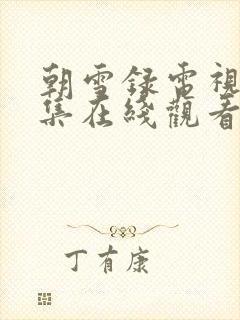 朝雪録電視
集在綫觀看
丁有康